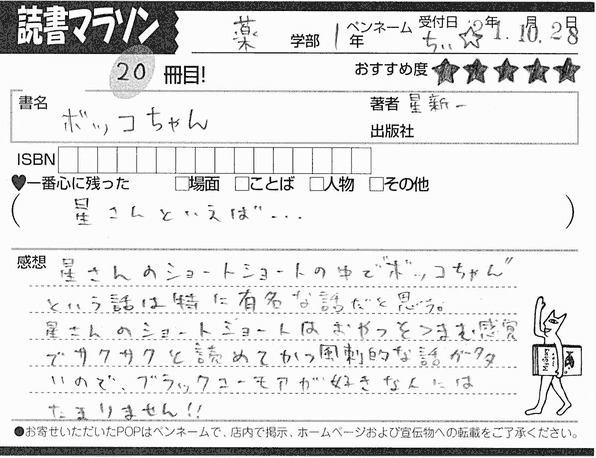 読書マラソン
薬 学部 1年 ペンネーム ちぃ☆ 受付日 21年 10月 28日
20 冊目!
おすすめ度 ★★★★★
書名 ボッコちゃん
著者 星新一
出版社
ISBN
♥一番心に残った □場面 □ことば □人物 □その他
(星さんといえば…)
感想 星さんのショートショートの中で"ボッコちゃん"
という話は特に有名な話だと思う。
星さんのショートショートはおやつをつまむ感覚
でサクサクと読めてかつ風刺的な話が多
いので、ブラックユーモアが好きな人には
たまりません!!
●お寄せいただいたPOPはペンネームで、店内で掲示、ホームページおよび宣伝物への転載をご了承ください。